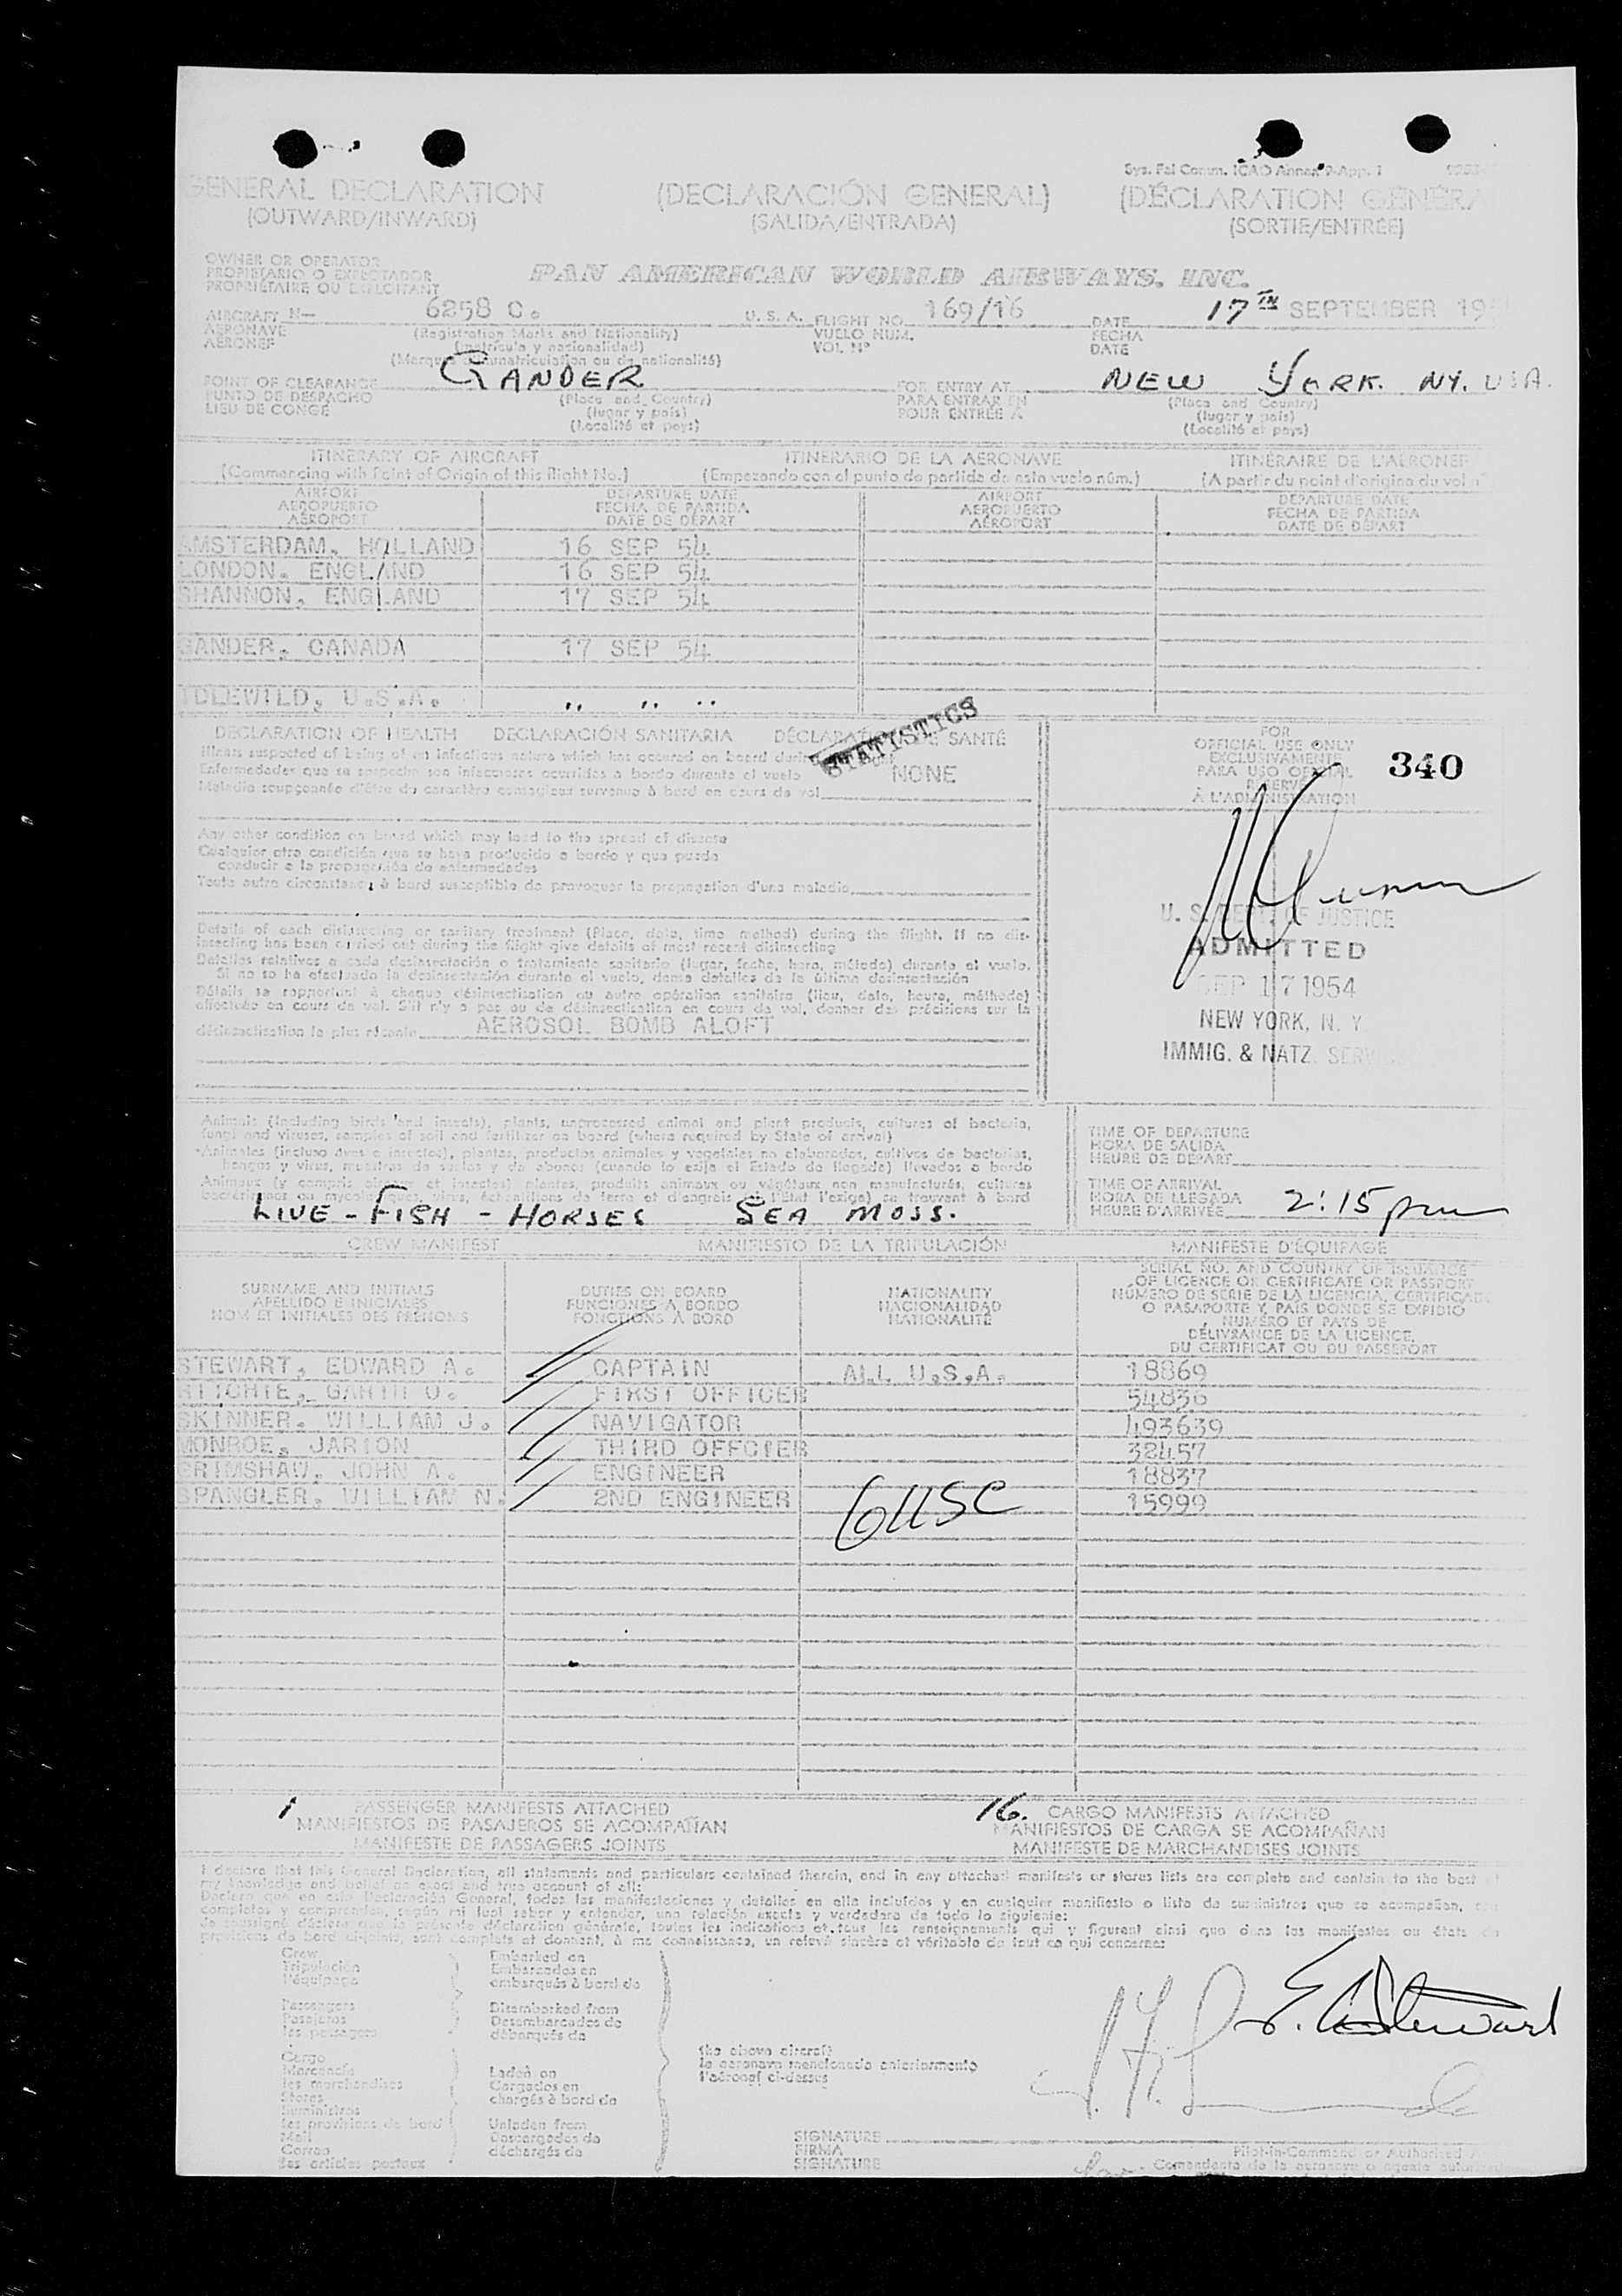 Sys. Fal Comm. ICAO Annex 9-App. 1
GENERAL DECLARATION (DECLARACIÓN GENERAL) (DÉCLARATION GÉNÉRA
(OUTWARD/INWARD) (SALIDA/ENTRADA) (SORTIE/ENTRÉE)
OWNER OR OPERATOR
PROPIETARIO O EXPLOTADOR
PROPRIÉTAIRE OU EXPLOITANT
PAN AMERICAN WORLD AIRWAYS, INC.
AIRCRAFT N— 6258 C. U. S. A. FLIGHT NO. 169/16 DATE 17TH SEPTEMBER 19
AERONAVE (Registration Marks and Nationality) VUELO NUM. FECHA
AÉRONEF (matrícula y nacionalidad) VOL Nº DATE
(Marques d'immatriculation ou de nationalité)
POINT OF CLEARANCE GANDER FOR ENTRY AT NEW YORK. NY. USA.
PUNTO DE DESPACHO (Place and Country) PARA ENTRAR EN (Place and Country)
LIEU DE CONGÉ (lugar y país) POUR ENTRÉE À (lugar y país)
(Localité et pays) (Localité et pays)
ITINERARY OF AIRCRAFT ITINERARIO DE LA AERONAVE ITINÉRAIRE DE L'AÉRONEF
(Commencing with Point of Origin of this flight No.) (Empezando con el punto de partida de este vuelo núm.) (A partir du point d'origine du vol nº)
AIRPORT DEPARTURE DATE AIRPORT DEPARTURE DATE
AEROPUERTO FECHA DE PARTIDA AEROPUERTO FECHA DE PARTIDA
AÉROPORT DATE DE DÉPART AÉROPORT DATE DE DÉPART
AMSTERDAM, HOLLAND 16 SEP 54
LONDON, ENGLAND 16 SEP 54
SHANNON, ENGLAND 17 SEP 54
GANDER, CANADA 17 SEP 54
IDLEWILD, U.S.A. " " "
STATISTICS
DECLARATION OF HEALTH DECLARACIÓN SANITARIA DÉCLARATION DE SANTÉ
Illness suspected of being of an infectious nature which has occured on board during
Enfermedades que se sospecha son infecciosas ocurridas a bordo durante el vuelo NONE
Maladie soupçonnée d'être du caractère contagieux survenue à bord en cours de vol
FOR
OFFICIAL USE ONLY
EXCLUSIVAMENTE
PARA USO OFICIAL
RÉSERVÉ
À L'ADMINISTRATION
340
Any other condition on board which may lead to the spread of disease
Cualquier otra condición que se haya producido a bordo y que pueda
conducir a la propagación de enfermedades
Toute autre circonstance à bord susceptible de provoquer la propagation d'une maladie
Details of each disinsecting or sanitary treatment (Place, date, time method) during the flight. If no dis-
insecting has been carried out during the flight give details of most recent disinsecting
Detalles relativos a cada desinsectación o tratamiento sanitario (lugar, fecha, hora, método) durante el vuelo.
Si no se ha efectuado la desinsectación durante el vuelo, dense detalles de la última desinsectación
Détails se rapportant à chaque désinsectisation ou autre opération sanitaire (lieu, date, heure, méthode)
effectuée en cours de vol. S'il n'y a pas eu de désinsectisation en cours de vol, donner des précisions sur la
désinsectisation la plus récente AEROSOL BOMB ALOFT
U. S. DEPT. OF JUSTICE
ADMITTED
SEP 17 1954
NEW YORK, N. Y.
IMMIG. & NATZ. SERVICE
Animals (including birds and insects), plants, unprocessed animal and plant products, cultures of bacteria,
fungi and viruses, samples of soil and fertilizer on board (where required by State of arrival)
Animales (incluso aves e insectos), plantas, productos animales y vegetales no elaborados, cultivos de bacterias,
hongos y virus, muestras de suelos y de abonos (cuando lo exija el Estado de llegada) llevados a bordo
Animaux (y compris oiseaux et insectes) plantes, produits animaux ou végétaux non manufacturés, cultures
bactériennes ou mycologiques, virus, échantillons de terre et d'engrais (si l'État l'exige) se trouvant à bord
LIVE - FISH - HORSES SEA MOSS.
TIME OF DEPARTURE
HORA DE SALIDA
HEURE DE DÉPART
TIME OF ARRIVAL
HORA DE LLEGADA
HEURE D'ARRIVÉE 2:15 pm
CREW MANIFEST MANIFIESTO DE LA TRIPULACIÓN MANIFESTE D'ÉQUIPAGE
SURNAME AND INITIALS
APELLIDO E INICIALES
NOM ET INITIALES DES PRÉNOMS
DUTIES ON BOARD
FUNCIONES A BORDO
FONCTIONS À BORD
NATIONALITY
NACIONALIDAD
NATIONALITÉ
SERIAL NO. AND COUNTRY OF ISSUANCE
OF LICENCE OR CERTIFICATE OR PASSPORT
NÚMERO DE SERIE DE LA LICENCIA, CERTIFICADO
O PASAPORTE Y PAÍS DONDE SE EXPIDIÓ
NUMÉRO ET PAYS DE
DÉLIVRANCE DE LA LICENCE,
DU CERTIFICAT OU DU PASSEPORT
STEWART, EDWARD A. CAPTAIN ALL U.S.A. 18869
RITCHIE, GARTH O. FIRST OFFICER 54836
SKINNER, WILLIAM J. NAVIGATOR 493639
MONROE, JARION THIRD OFFCIER 32457
GRIMSHAW, JOHN A. ENGINEER 18837
SPANGLER, WILLIAM N. 2ND ENGINEER 15999
6 USC
1 PASSENGER MANIFESTS ATTACHED 16. CARGO MANIFESTS ATTACHED
MANIFIESTOS DE PASAJEROS SE ACOMPAÑAN MANIFIESTOS DE CARGA SE ACOMPAÑAN
MANIFESTE DE PASSAGERS JOINTS MANIFESTE DE MARCHANDISES JOINTS
I declare that this General Declaration, all statements and particulars contained therein, and in any attached manifests or stores lists are complete and contain to the best of
my knowledge and belief an exact and true account of all:
Declaro que en esta Declaración General, todas las manifestaciones y detalles en ella incluídos y en cualquier manifiesto o lista de suministros que se acompañan,
completos y comprenden, según mi leal saber y entender, una relación exacta y verdadera de todo lo siguiente:
Je soussigné déclare que la présente déclaration générale, toutes les indications et tous les renseignements qui y figurent ainsi que dans les manifestes ou états de
provisions de bord ci-joints, sont complets et donnent, à ma connaissance, un relevé sincère et véritable de tout ce qui concerne:
Crew Embarked on
Tripulación Embarcados en
l'équipage embarqués à bord de
Passengers Disembarked from
Pasajeros Desembarcados de
les passagers débarqués de
Cargo
Mercancía Laden on
les marchandises Cargados en
Stores chargés à bord de
Suministros
les provisions de bord Unladen from
Mail Descargados de
Correo déchargés de
les articles postaux
the above aircraft
la aeronave mencionada anteriormente
l'aéronef ci-dessus
E. A. Stewart
SIGNATURE
FIRMA
SIGNATURE
Pilot-in-Command or Authorized
Comandante de la aeronave o agente autorizado